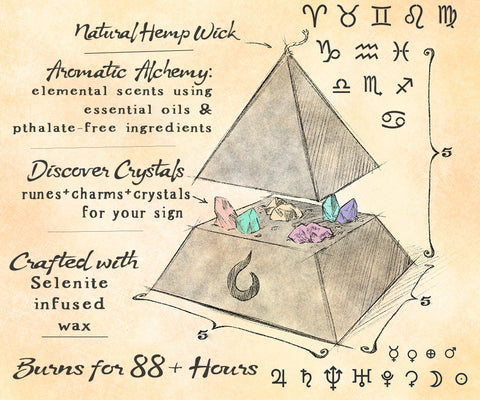 Natural Hemp Wick
♈ ♉ ♊ ♌ ♍
♑ ♒ ♓
♎ ♏ ♐
♋
Aromatic Alchemy:
elemental scents using
essential oils &
pthalate-free ingredients
5
Discover Crystals
runes+charms+crystals
for your sign
Crafted with
Selenite
infused
wax
5
5
Burns for 88+ Hours
☿ ♀ ⊕ ♂
♃ ♄ ♆ ♅ ♇ ⚳ ☽ ☉